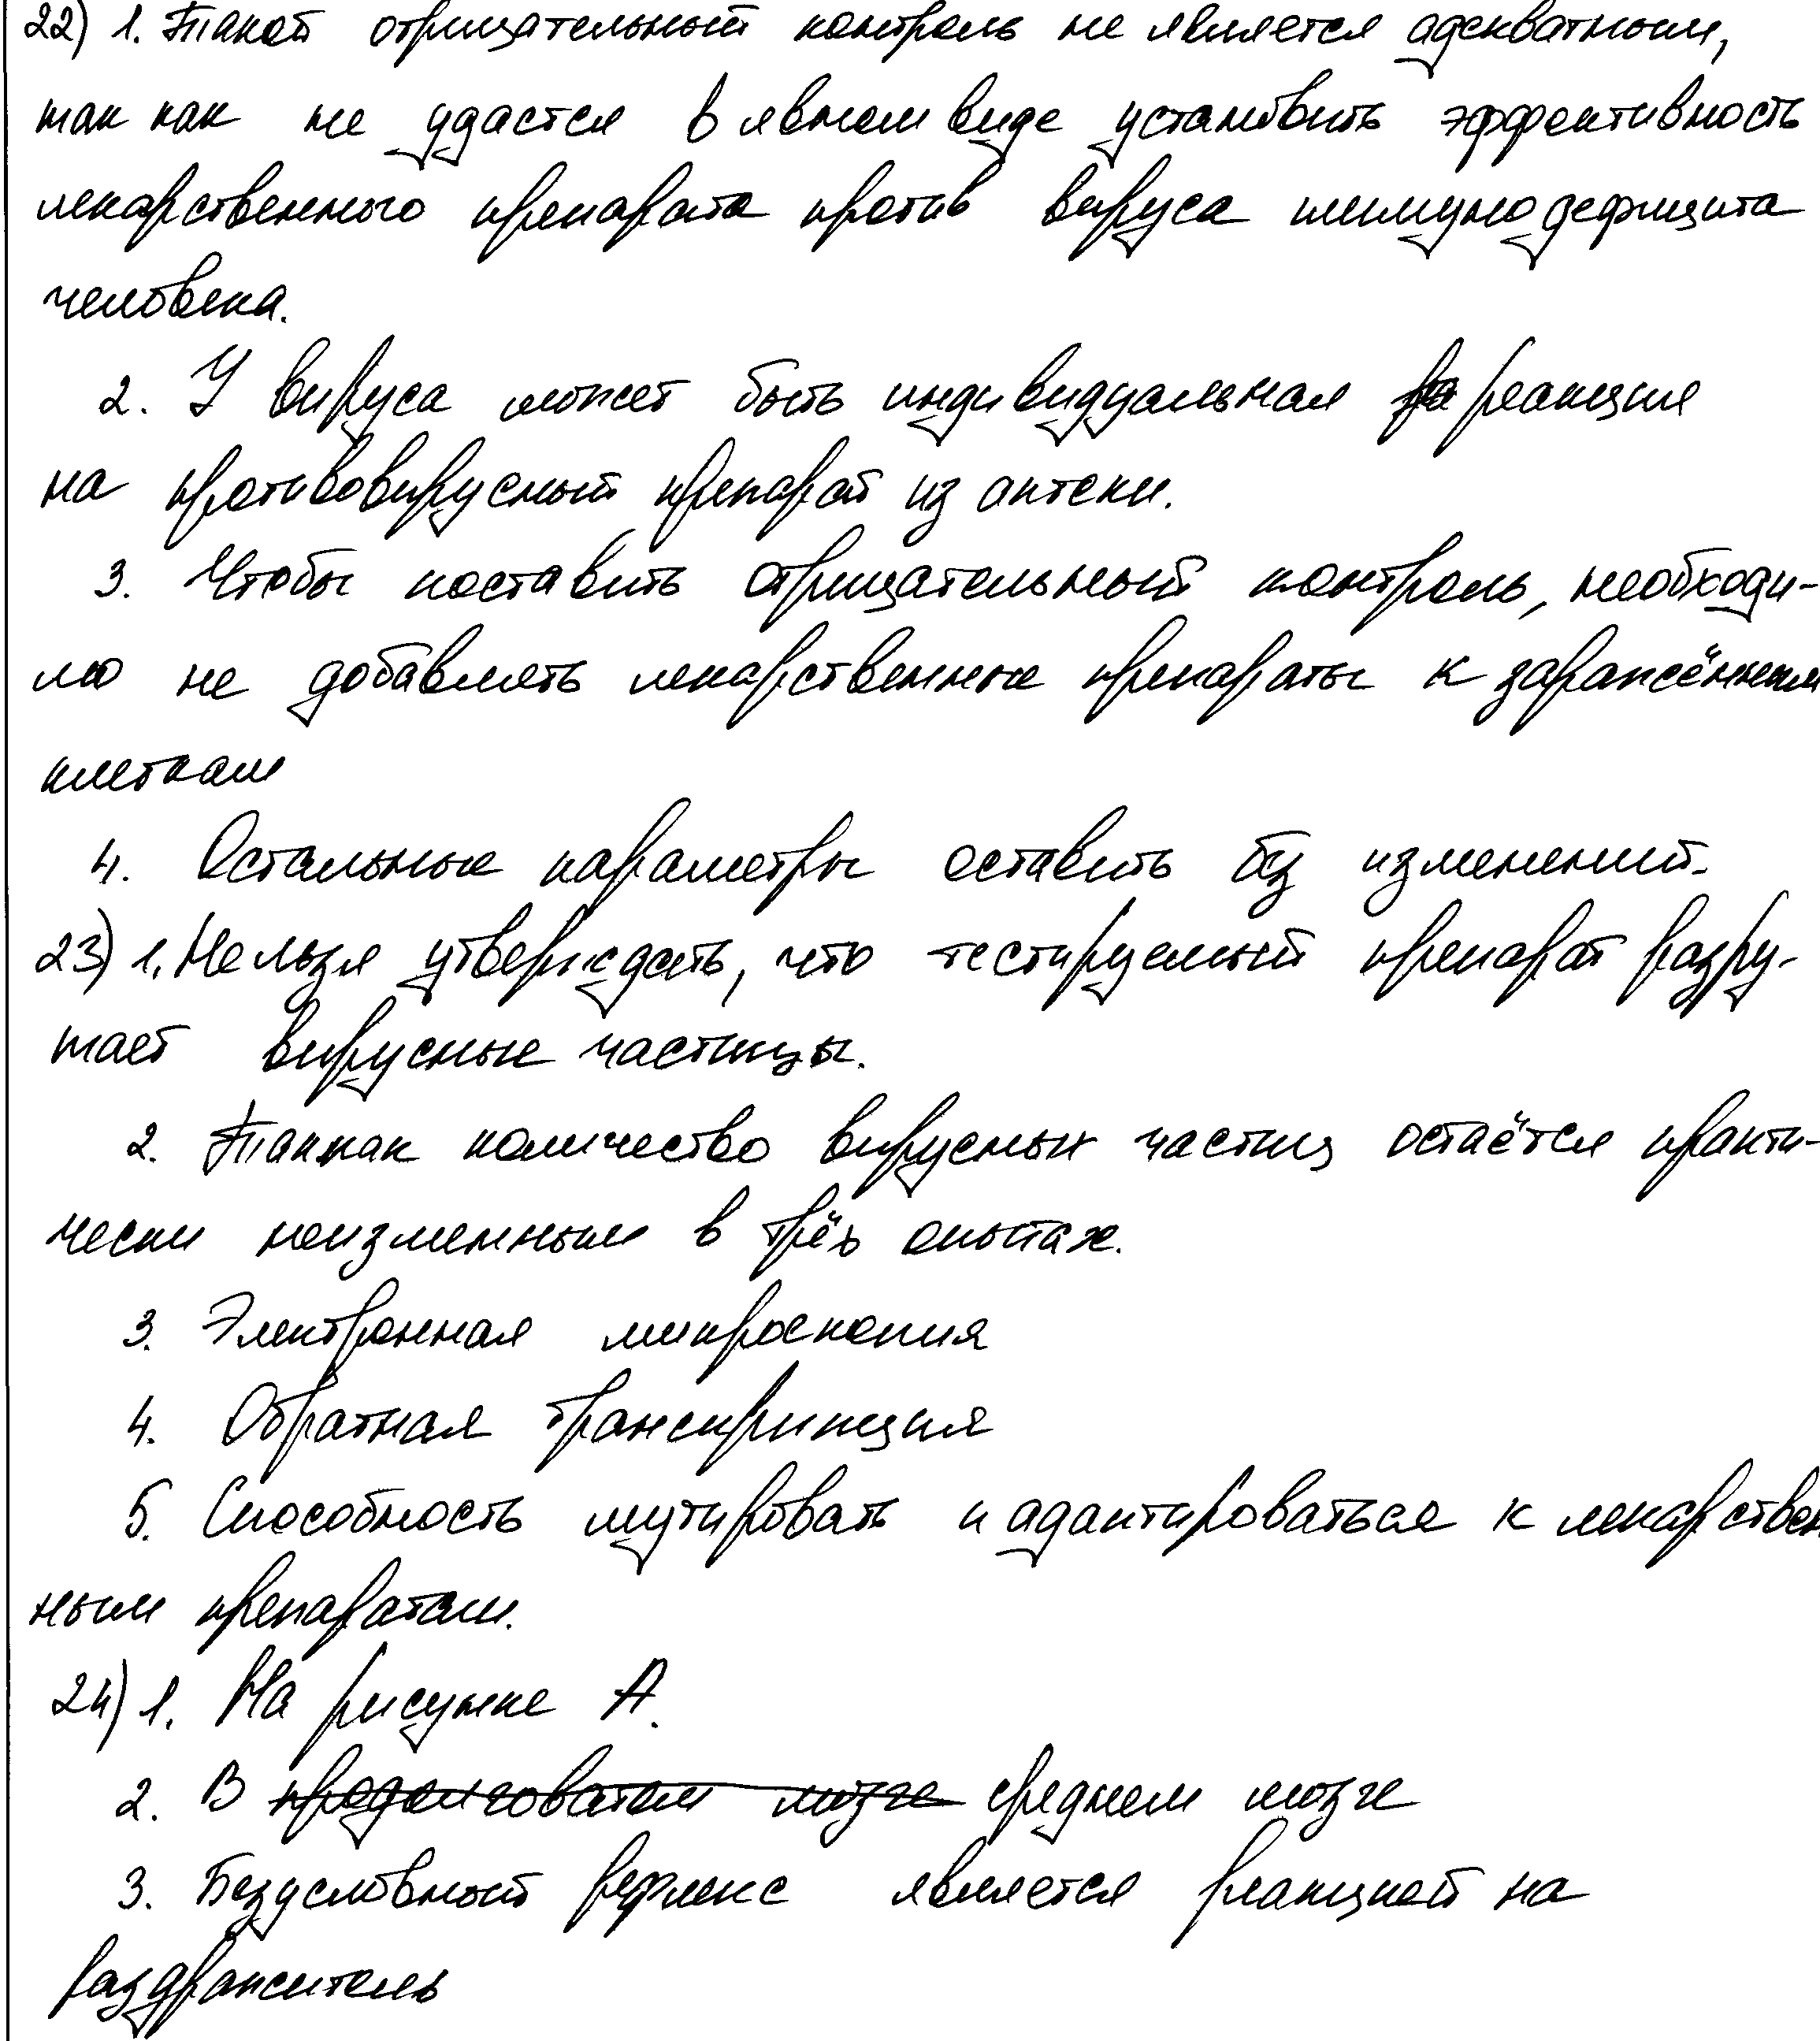 22) 1. Такой отрицательный контроль не является адекватным,
так как не удастся в явном виде установить эффективность
лекарственного препарата против вируса иммунодефицита
человека.
2. У вируса может быть индивидуальная реакция
на противовирусный препарат из аптеки.
3. Чтобы поставить отрицательный контроль, необходи-
мо не добавлять лекарственные препараты к заражённым
клеткам
4. Остальные параметры оставить без изменений.
23) 1. Нельзя утверждать, что тестируемый препарат разру-
шает вирусные частицы.
2. Так как количество вирусных частиц остаётся практи-
чески неизменным в трёх опытах.
3. Электронная микроскопия
4. Обратная транскрипция
5. Способность мутировать и адаптироваться к лекарствен
ным препаратам.
24) 1. На рисунке А.
2. В продолговатом мозге среднем мозге
3. Безусловный рефлекс является реакцией на
раздражитель